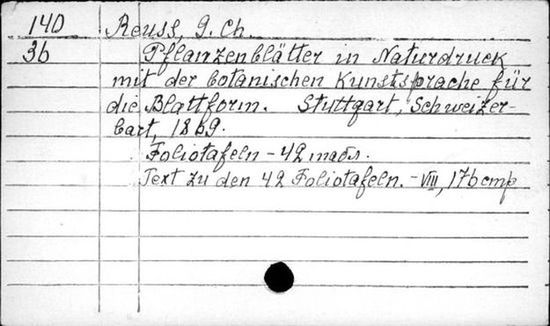 140 Reuss, G. Ch.
36 Pflanzenblätter in Naturdruck
mit der botanischen Kunstsprache für
die Blattform. Stuttgart, Schweizer-
bart, 1869.
Foliotafeln - 42 табл.
Text zu den 42 Foliotafeln. - VIII, 176 стр